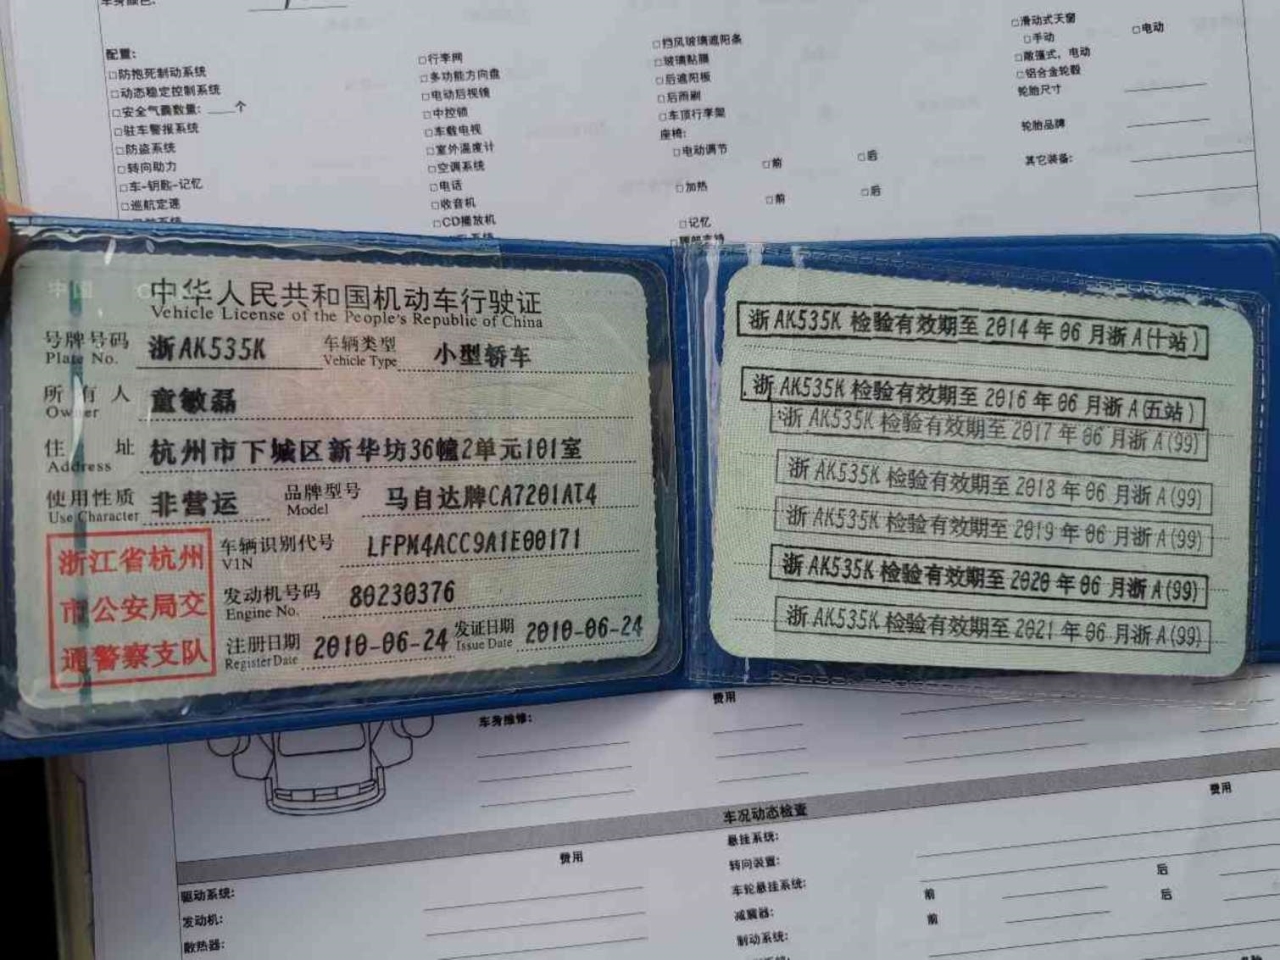 车身颜色:
配置:
□防抱死制动系统
□动态稳定控制系统
□安全气囊数量: 个
□驻车警报系统
□防盗系统
□转向助力
□车-钥匙-记忆
□巡航定速
□行李网
□多功能方向盘
□电动后视镜
□中控锁
□车载电视
□室外温度计
□空调系统
□电话
□收音机
□CD播放机
□挡风玻璃遮阳条
□玻璃贴膜
□后遮阳板
□后雨刷
□车顶行李架
座椅:
□电动调节
□前 □后
□加热
□前 □后
□记忆
□滑动式天窗
□手动 □电动
□敞篷式, 电动
□铝合金轮毂
轮胎尺寸
轮胎品牌
其它装备:
中华人民共和国机动车行驶证
Vehicle License of the People's Republic of China
号牌号码 浙AK535K 车辆类型 小型轿车
Plate No. Vehicle Type
所有人 童敏磊
Owner
住址 杭州市下城区新华坊36幢2单元101室
Address
使用性质 非营运 品牌型号 马自达牌CA7201AT4
Use Character Model
浙江省杭州
市公安局交
通警察支队
车辆识别代号 LFPM4ACC9A1E00171
VIN
发动机号码 80230376
Engine No.
注册日期 2010-06-24 发证日期 2010-06-24
Register Date Issue Date
浙AK535K 检验有效期至 2014 年 06 月浙A(十站)
浙AK535K 检验有效期至 2016 年 06 月浙A(五站)
浙AK535K 检验有效期至 2017 年 06 月浙A(99)
浙AK535K 检验有效期至 2018 年 06 月浙A(99)
浙AK535K 检验有效期至 2019 年 06 月浙A(99)
浙AK535K 检验有效期至 2020 年 06 月浙A(99)
浙AK535K 检验有效期至 2021 年 06 月浙A(99)
车身维修: 费用
车况动态检查
费用
费用
驱动系统:
发动机:
散热器:
悬挂系统:
转向装置:
车轮悬挂系统: 前 后
减震器: 前 后
制动系统: